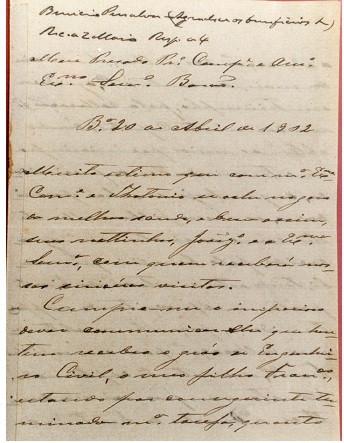 Benicio Penalva (Agradece os beneficios &)
Rec. a 2 Maio Resp. a 4
Meu Presado Pr.º Comp.e e Am.º
Ex.mo Senr. Barão.
B.ª 20 de Abril de 1902
Muito estimo que com m.ª Ex.ma
Com.e e Yhotonio se ache no goso
da melhor saude, e bem assim,
seus nettinhos, e a Ex.ma
Senr.ª, com quem receberá nos
sas sinceras visitas.
Cumpre-me o imperioso
dever communicar-lhe que hon
tem recebeu o gráo de Engenhei
ro Civil, o meu filho Fran.co,
estando por conseguinte ter
minado m.ª tarefa, quanto